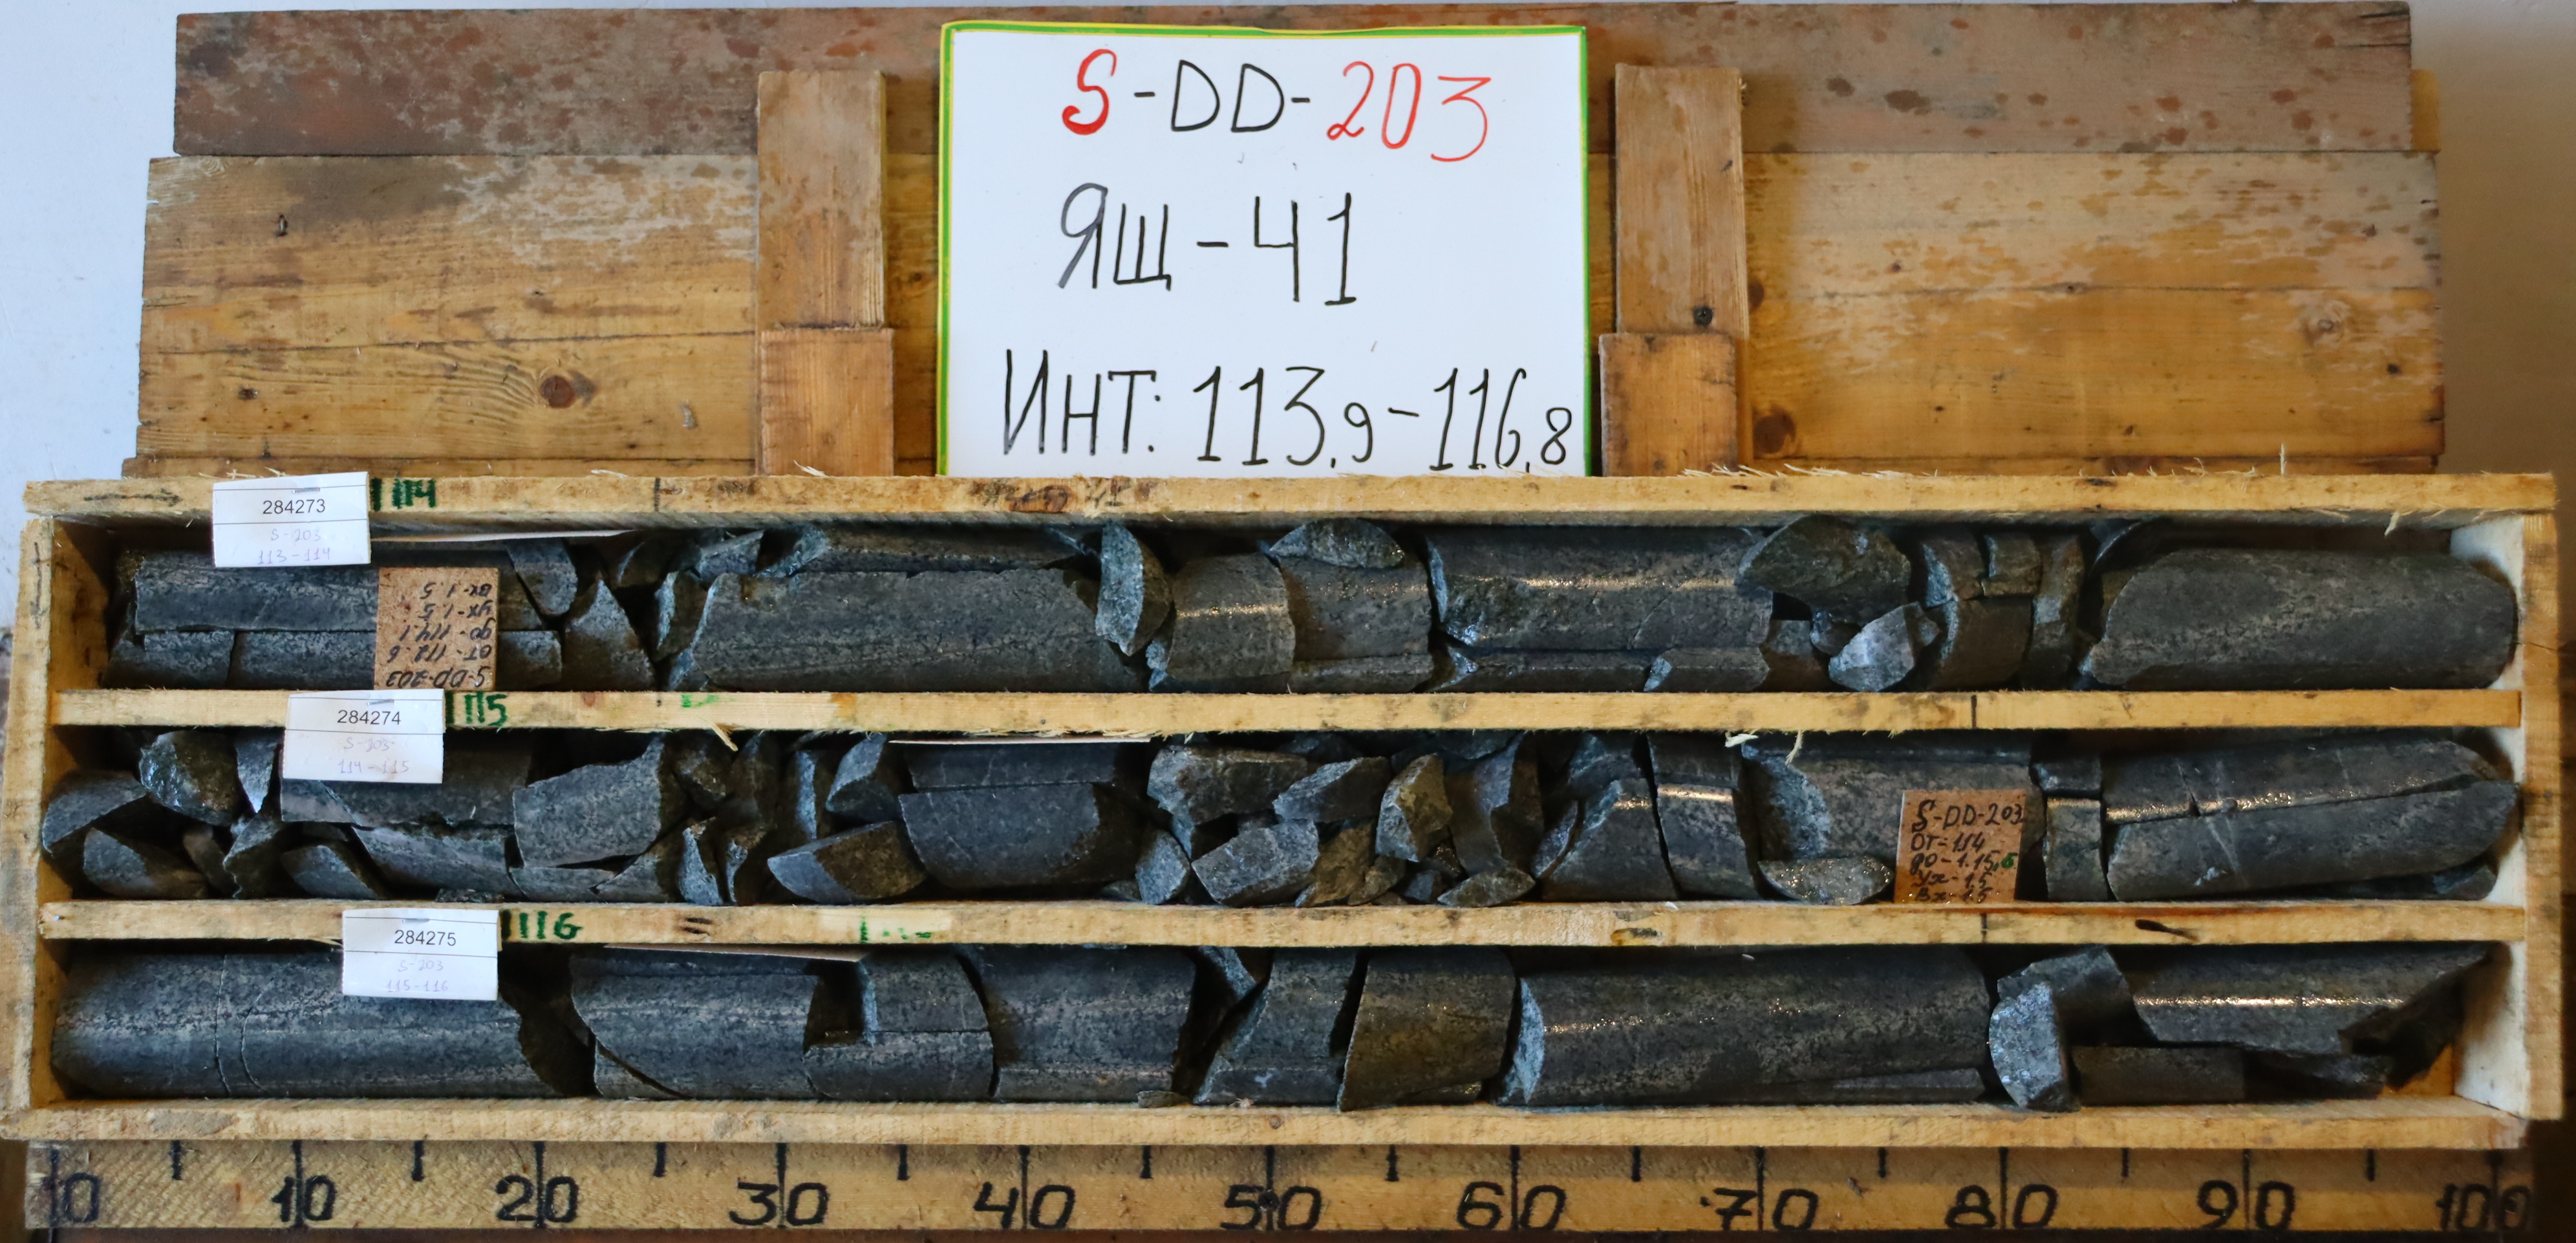 S-DD-203
ЯЩ-41
ИНТ: 113,9-116,8
284273
S-203
113-114
114
S-DD-203
ОТ-112.6
до-114.1
Ух-1.5
Вх-1.5
284274
S-203
114-115
115
S-DD-203
ОТ-114
до-1.15,6
Ух-1.5
Вх-1.5
284275
S-203
115-116
116
0 10 20 30 40 50 60 70 80 90 100